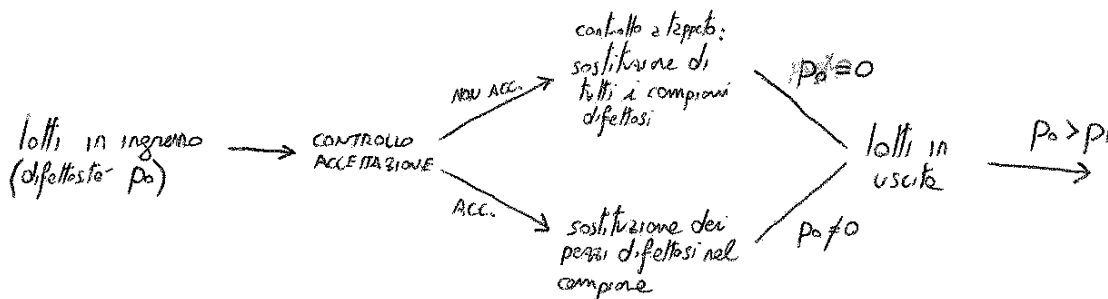 lotti in ingresso
(difettosità p₀)
CONTROLLO
ACCETTAZIONE
NON ACC.
controllo a tappeto:
sostituzione di
tutti i campioni
difettosi
p₀ = 0
ACC.
sostituzione dei
pezzi difettosi nel
campione
p₀ ≠ 0
lotti in
uscita
p₀ > p₁